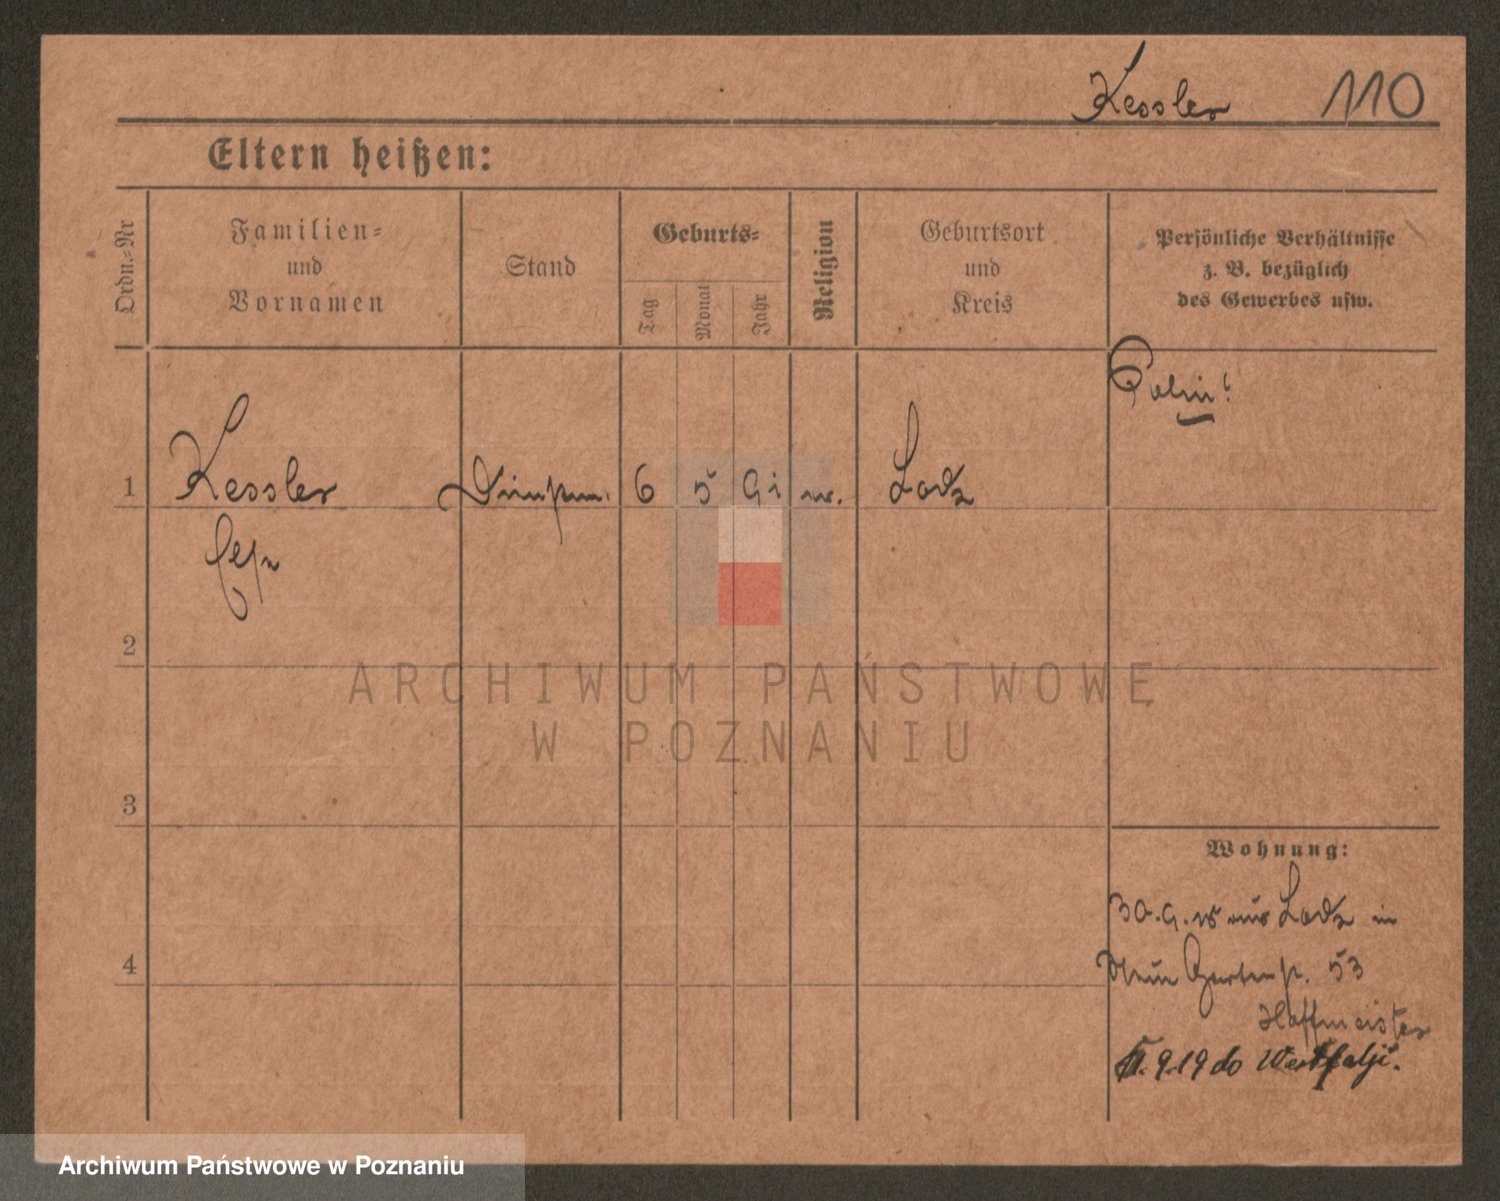 Kessler 110
Eltern heißen:
Ordn.-Nr
Familien-
und
Vornamen
Stand
Geburts-
Tag
Monat
Jahr
Religion
Geburtsort
und
Kreis
Persönliche Verhältnisse
z. B. bezüglich
des Gewerbes usw.
1 Kessler 6 5 91 Lodz
2
3
4
ARCHIWUM PAŃSTWOWE
W POZNANIU
Wohnung:
30.9.15 aus Lodz in
Gartenstr. 53
Hoffmeister
9.19 do Westfalji.
Archiwum Państwowe w Poznaniu